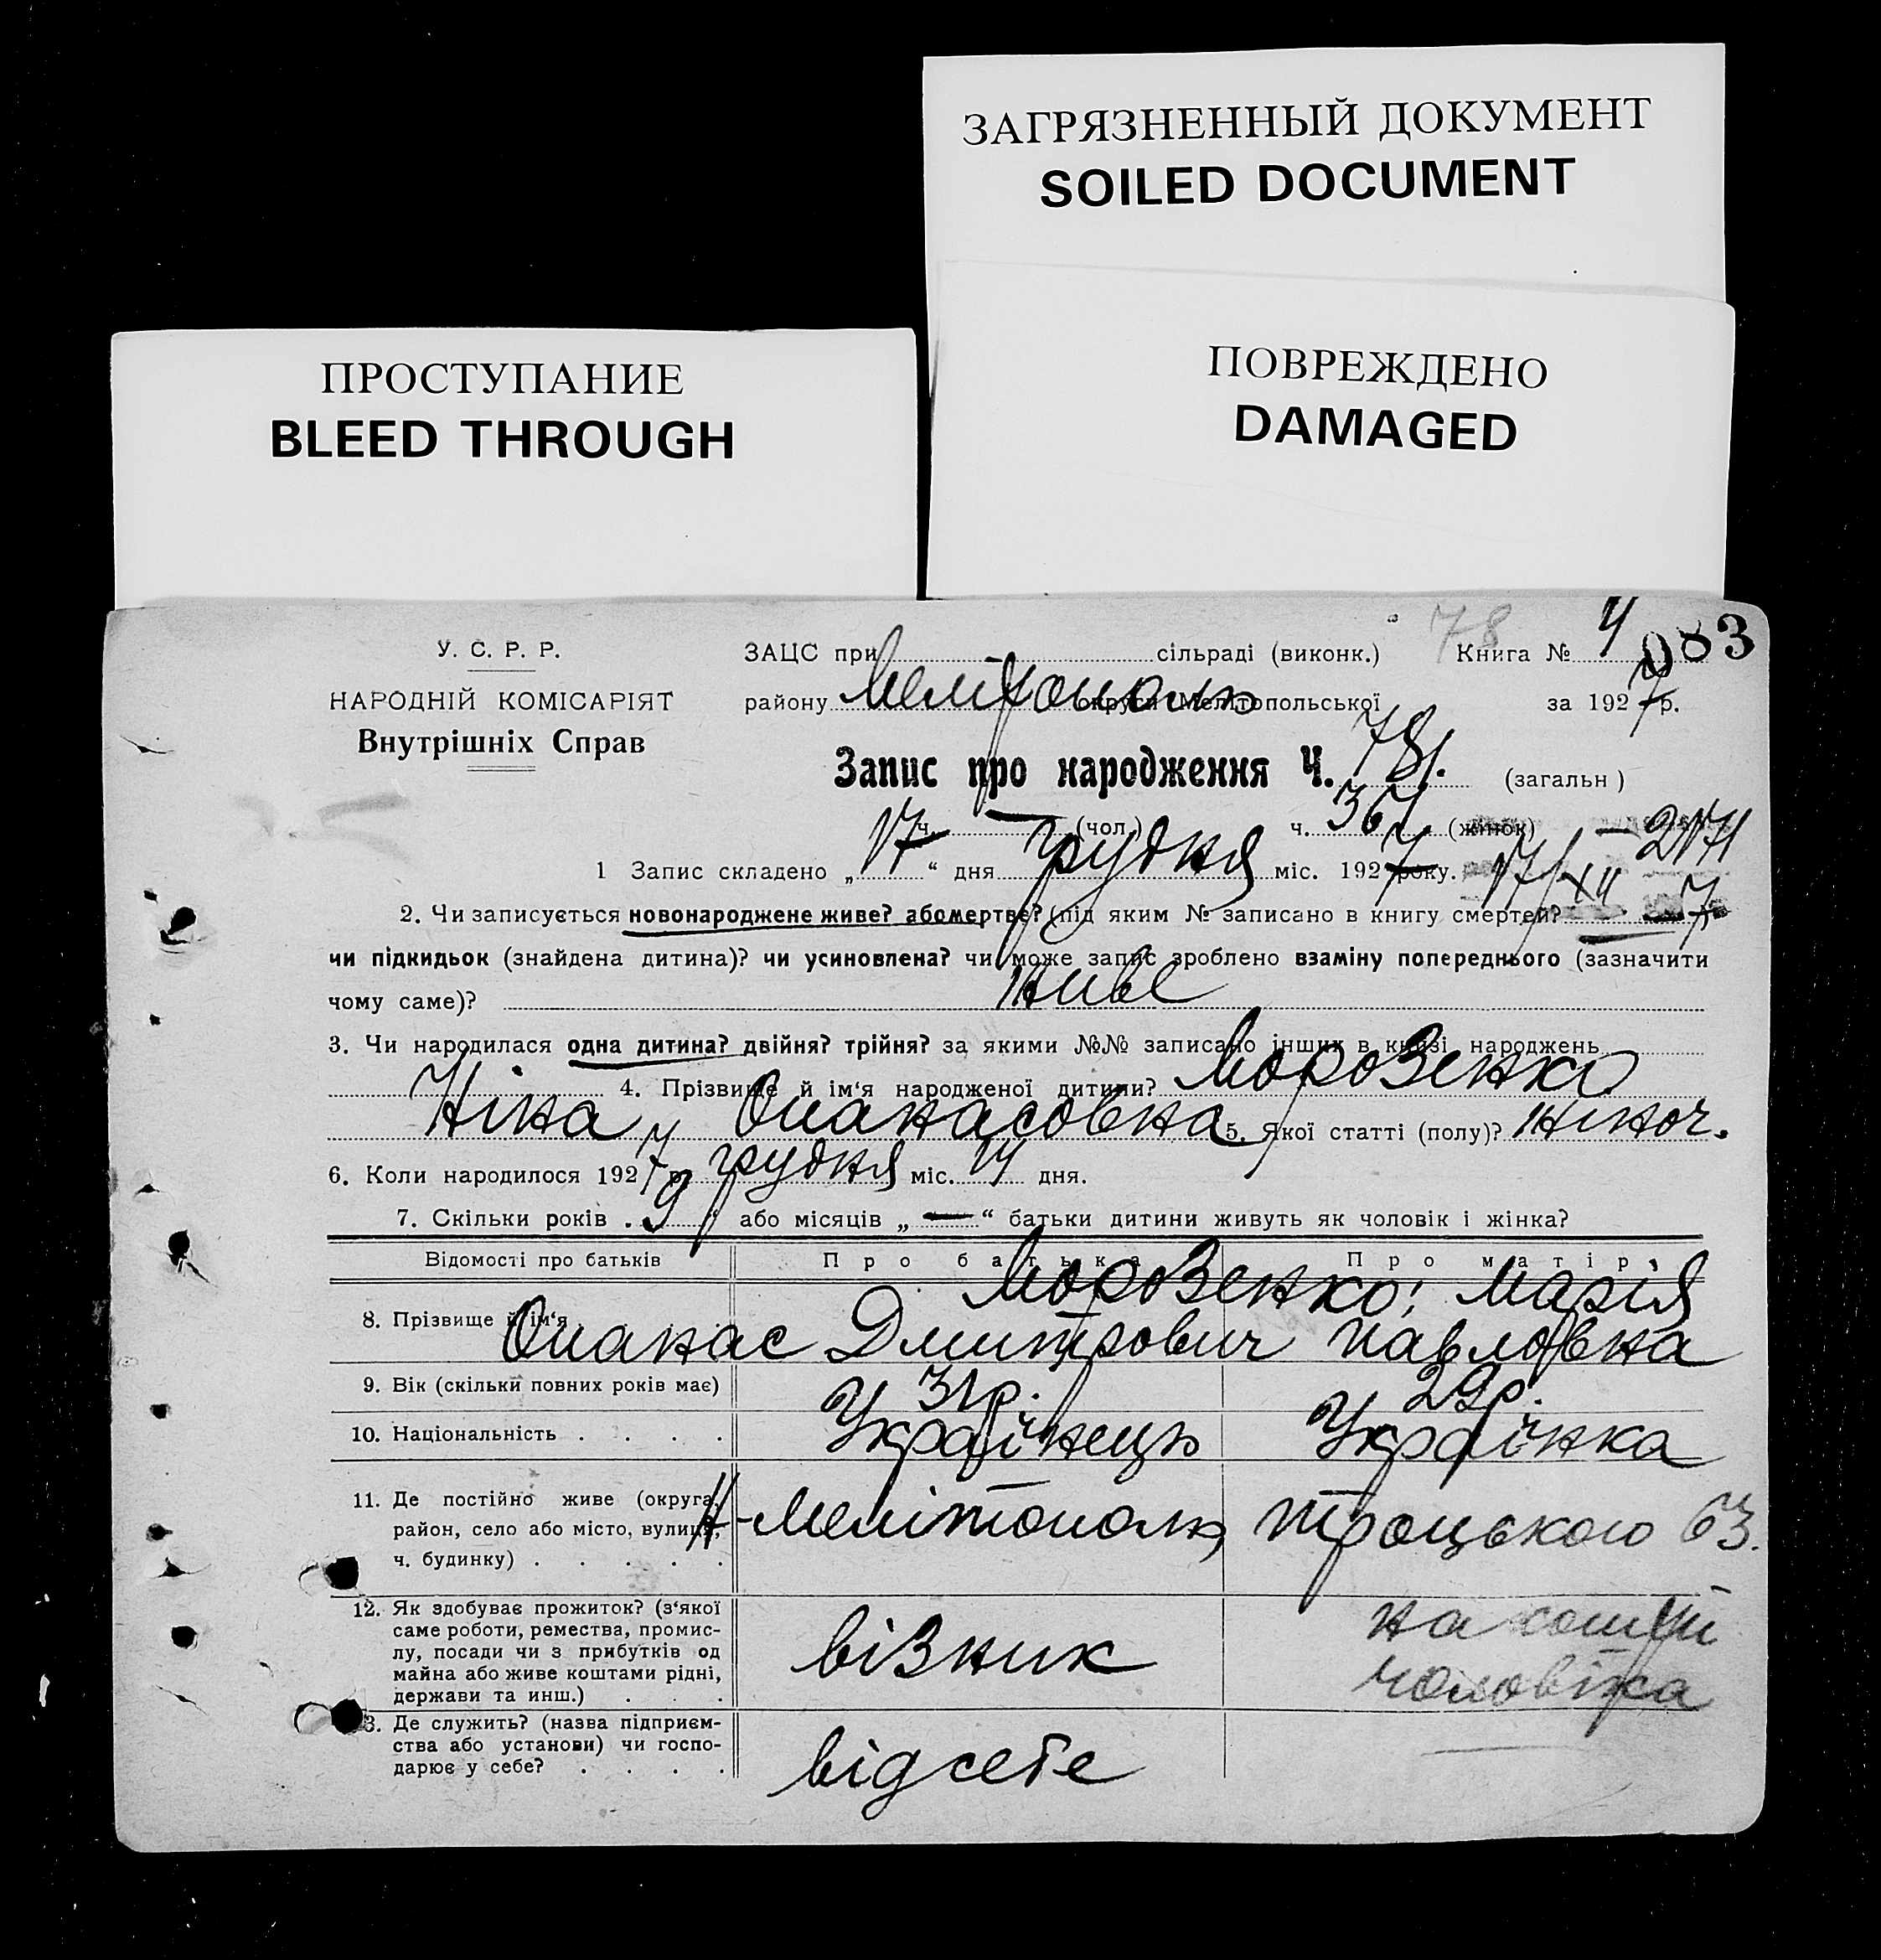 ЗАГРЯЗНЕННЫЙ ДОКУМЕНТ
SOILED DOCUMENT
ПОВРЕЖДЕНО
DAMAGED
ПРОСТУПАНИЕ
BLEED THROUGH
У. С. Р. Р.
НАРОДНІЙ КОМІСАРІЯТ
Внутрішніх Справ
78
083
ЗАЦС при — сільраді (виконк.) Книга № 4
району Мелітополь округи Мелітопольської за 1927 р.
Запис про народження Ч. 781. (загальн)
ч. — (чол.) ч. 367 (жінок)
1 Запис складено „17“ дня грудня міс. 1927 року. 17/XII
2. Чи записується новонароджене живе? або мертве? (під яким № записано в книгу смертей?
чи підкидьок (знайдена дитина)? чи усиновлена? чи може запис зроблено взаміну попереднього (зазначити
чому саме)? живе
3. Чи народилася одна дитина? двійня? трійня? за якими №№ записано інших в книзі народжень
4. Прізвище й ім‘я народженої дитини? Морозенко
Ніна Опанасовна 5. Якої статті (полу)? жіноч.
6. Коли народилося 1927 р. грудня міс. 14 дня.
7. Скільки років „9“ або місяців „—“ батьки дитини живуть як чоловік і жінка?
Відомості про батьків Про батька Про матір
8. Прізвище й ім‘я Морозенко: Марія
Опанас Дмитрович Павловна
9. Вік (скільки повних років має) 31р. 29р.
10. Національність . . . . Українець Українка
11. Де постійно живе (округа,
район, село або місто, вулиця, Н-Мелітополь, Троцького 63.
ч. будинку) . . . . .
12. Як здобуває прожиток? (з‘якої
саме роботи, ремества, промис-
лу, посади чи з прибутків од
майна або живе коштами рідні,
держави та инш.) . . . візник на кошти чоловіка
13. Де служить? (назва підприєм-
ства або установи) чи госпо-
дарює у себе? . . . . від себе —